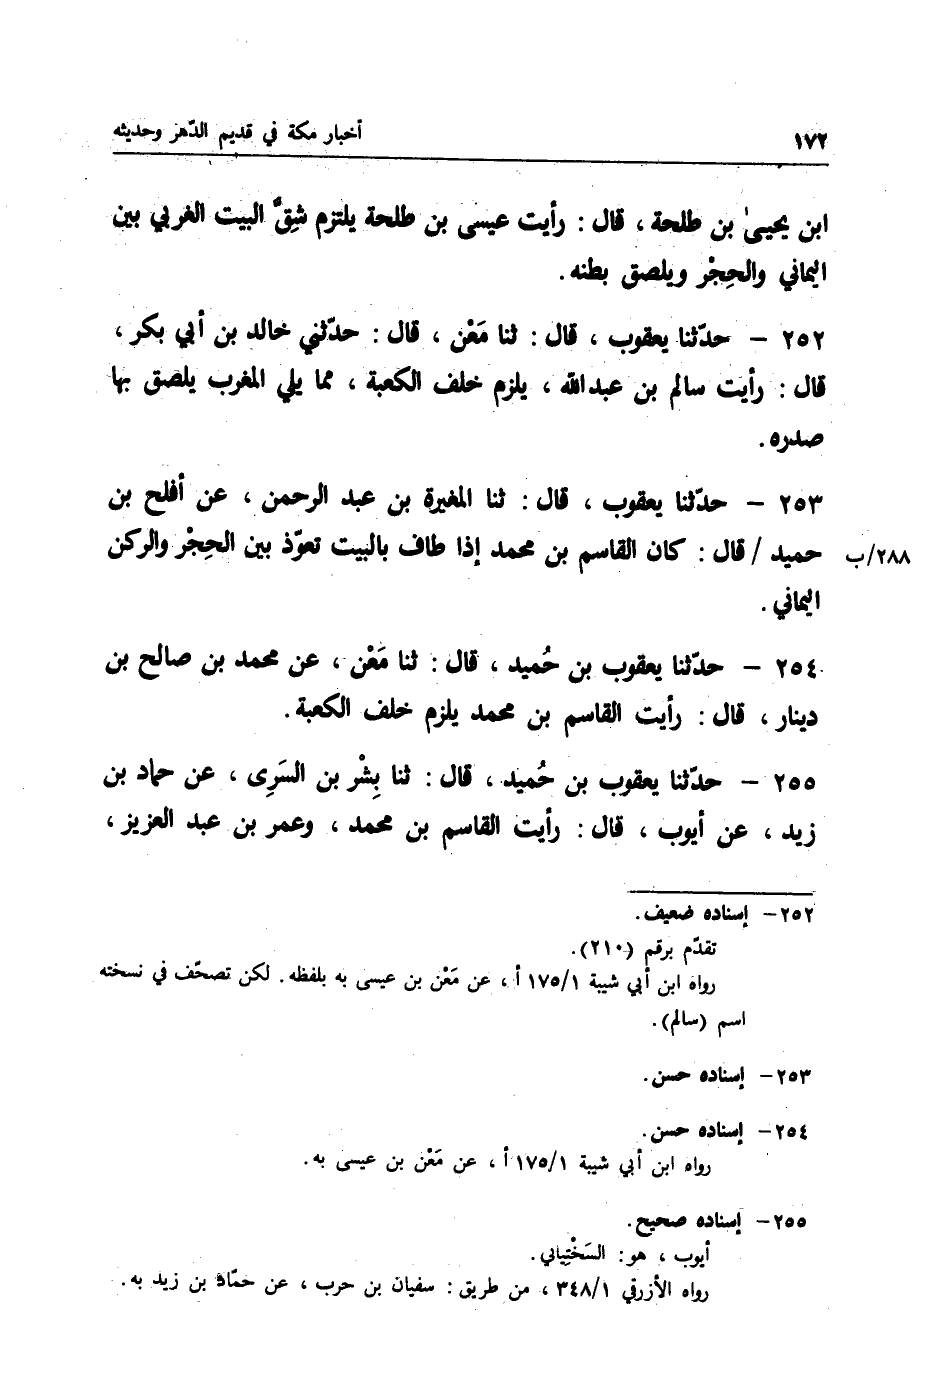 ١٧٢ أخبار مكة في قديم الدّهر وحديثه
ابن يحيىٰ بن طلحة ، قال : رأيت عيسى بن طلحة يلتزم شِقَّ البيت الغربي بين
اليماني والحِجْر ويلصق بطنه .
٢٥٢ – حدّثنا يعقوب ، قال : ثنا مَعْن ، قال : حدّثني خالد بن أبي بكر ،
قال : رأيت سالم بن عبدالله ، يلزم خلف الكعبة ، مما يلي المغرب يلصق بها
صدره .
٢٥٣ – حدّثنا يعقوب ، قال : ثنا المغيرة بن عبد الرحمن ، عن أفلح بن
حميد / قال : كان القاسم بن محمد إذا طاف بالبيت تعوّذ بين الحِجْر والركن
٢٨٨/ب
اليماني .
٢٥٤ – حدّثنا يعقوب بن حُميد ، قال : ثنا مَعْن ، عن محمد بن صالح بن
دينار ، قال : رأيت القاسم بن محمد يلزم خلف الكعبة .
٢٥٥ – حدّثنا يعقوب بن حُميد ، قال : ثنا بِشْر بن السَرِى ، عن حماد بن
زيد ، عن أيوب ، قال : رأيت القاسم بن محمد ، وعمر بن عبد العزيز ،
٢٥٢– إسناده ضعيف .
تقدّم برقم (٢١٠).
رواه ابن أبي شيبة ١٧٥/١ أ ، عن مَعْن بن عيسى به بلفظه . لكن تصحّف في نسخته
اسم (سالم) .
٢٥٣– إسناده حسن .
٢٥٤– إسناده حسن .
رواه ابن أبي شيبة ١٧٥/١ أ ، عن مَعْن بن عيسى به .
٢٥٥– إسناده صحيح .
أيوب ، هو : السَخْتِياني .
رواه الأزرقي ٣٤٨/١ ، من طريق : سفيان بن حرب ، عن حمّاد بن زيد به .